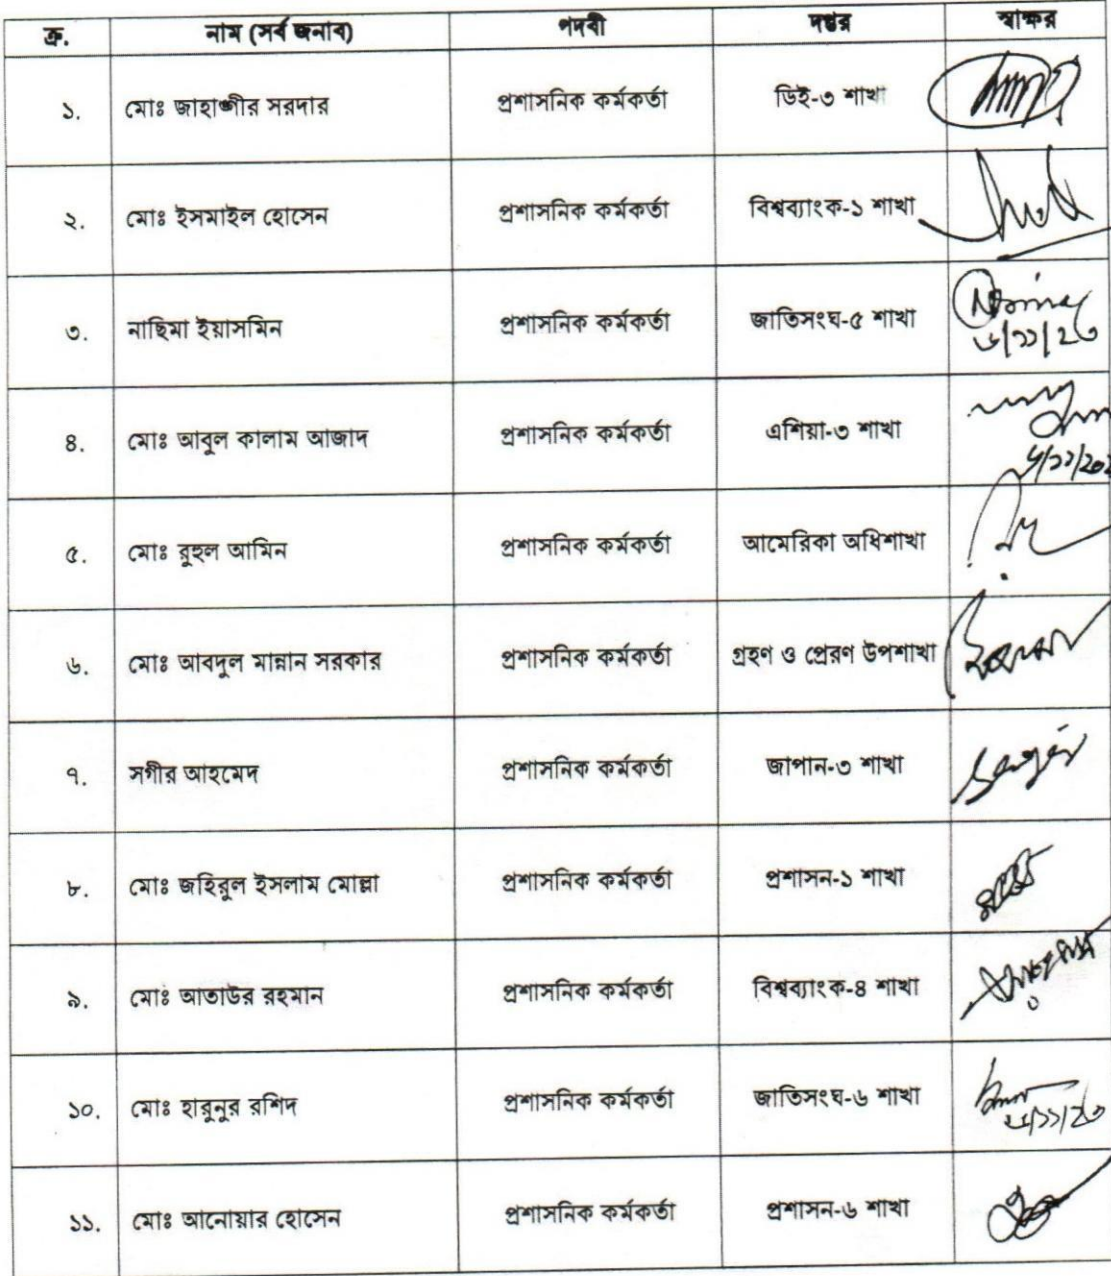 ক্র. নাম (সর্ব জনাব) পদবী দপ্তর স্বাক্ষর
১. মোঃ জাহাঙ্গীর সরদার প্রশাসনিক কর্মকর্তা ডিই-৩ শাখা
২. মোঃ ইসমাইল হোসেন প্রশাসনিক কর্মকর্তা বিশ্বব্যাংক-১ শাখা
৩. নাছিমা ইয়াসমিন প্রশাসনিক কর্মকর্তা জাতিসংঘ-৫ শাখা
৪. মোঃ আবুল কালাম আজাদ প্রশাসনিক কর্মকর্তা এশিয়া-৩ শাখা
৫. মোঃ রুহুল আমিন প্রশাসনিক কর্মকর্তা আমেরিকা অধিশাখা
৬. মোঃ আবদুল মান্নান সরকার প্রশাসনিক কর্মকর্তা গ্রহণ ও প্রেরণ উপশাখা
৭. সগীর আহমেদ প্রশাসনিক কর্মকর্তা জাপান-৩ শাখা
৮. মোঃ জহিরুল ইসলাম মোল্লা প্রশাসনিক কর্মকর্তা প্রশাসন-১ শাখা
৯. মোঃ আতাউর রহমান প্রশাসনিক কর্মকর্তা বিশ্বব্যাংক-৪ শাখা
১০. মোঃ হারুনুর রশিদ প্রশাসনিক কর্মকর্তা জাতিসংঘ-৬ শাখা
১১. মোঃ আনোয়ার হোসেন প্রশাসনিক কর্মকর্তা প্রশাসন-৬ শাখা